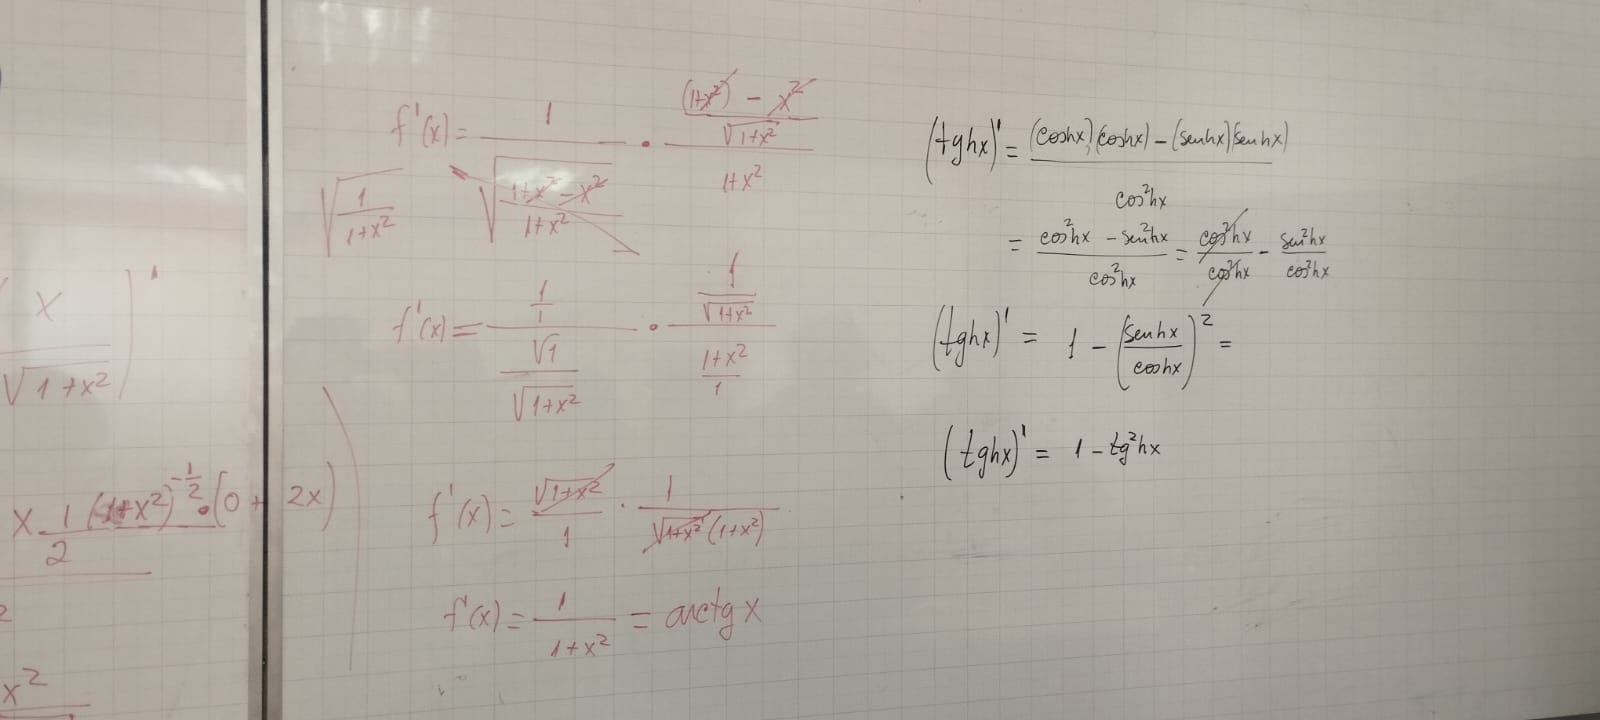 ( x / √(1+x²) )'
x · 1/2 (1+x²)^(-1/2) · (0 + 2x)
2
x²
f'(x) = 1 / √((1+x² - x²)/(1+x²)) · (((1+x²) - x²)/√(1+x²)) / (1+x²)
√(1/(1+x²))
f'(x) = (1/1) / (√1/√(1+x²)) · (1/√(1+x²)) / ((1+x²)/1)
f'(x) = √(1+x²)/1 · 1/(√(1+x²) (1+x²))
f'(x) = 1/(1+x²) = arctg x
(tghx)' = ((coshx)(coshx) - (senhx)(senhx)) / cos²hx
= (cos²hx - sen²hx)/cos²hx = cos²hx/cos²hx - sen²hx/cos²hx
(tghx)' = 1 - (senhx/coshx)² =
(tghx)' = 1 - tg²hx